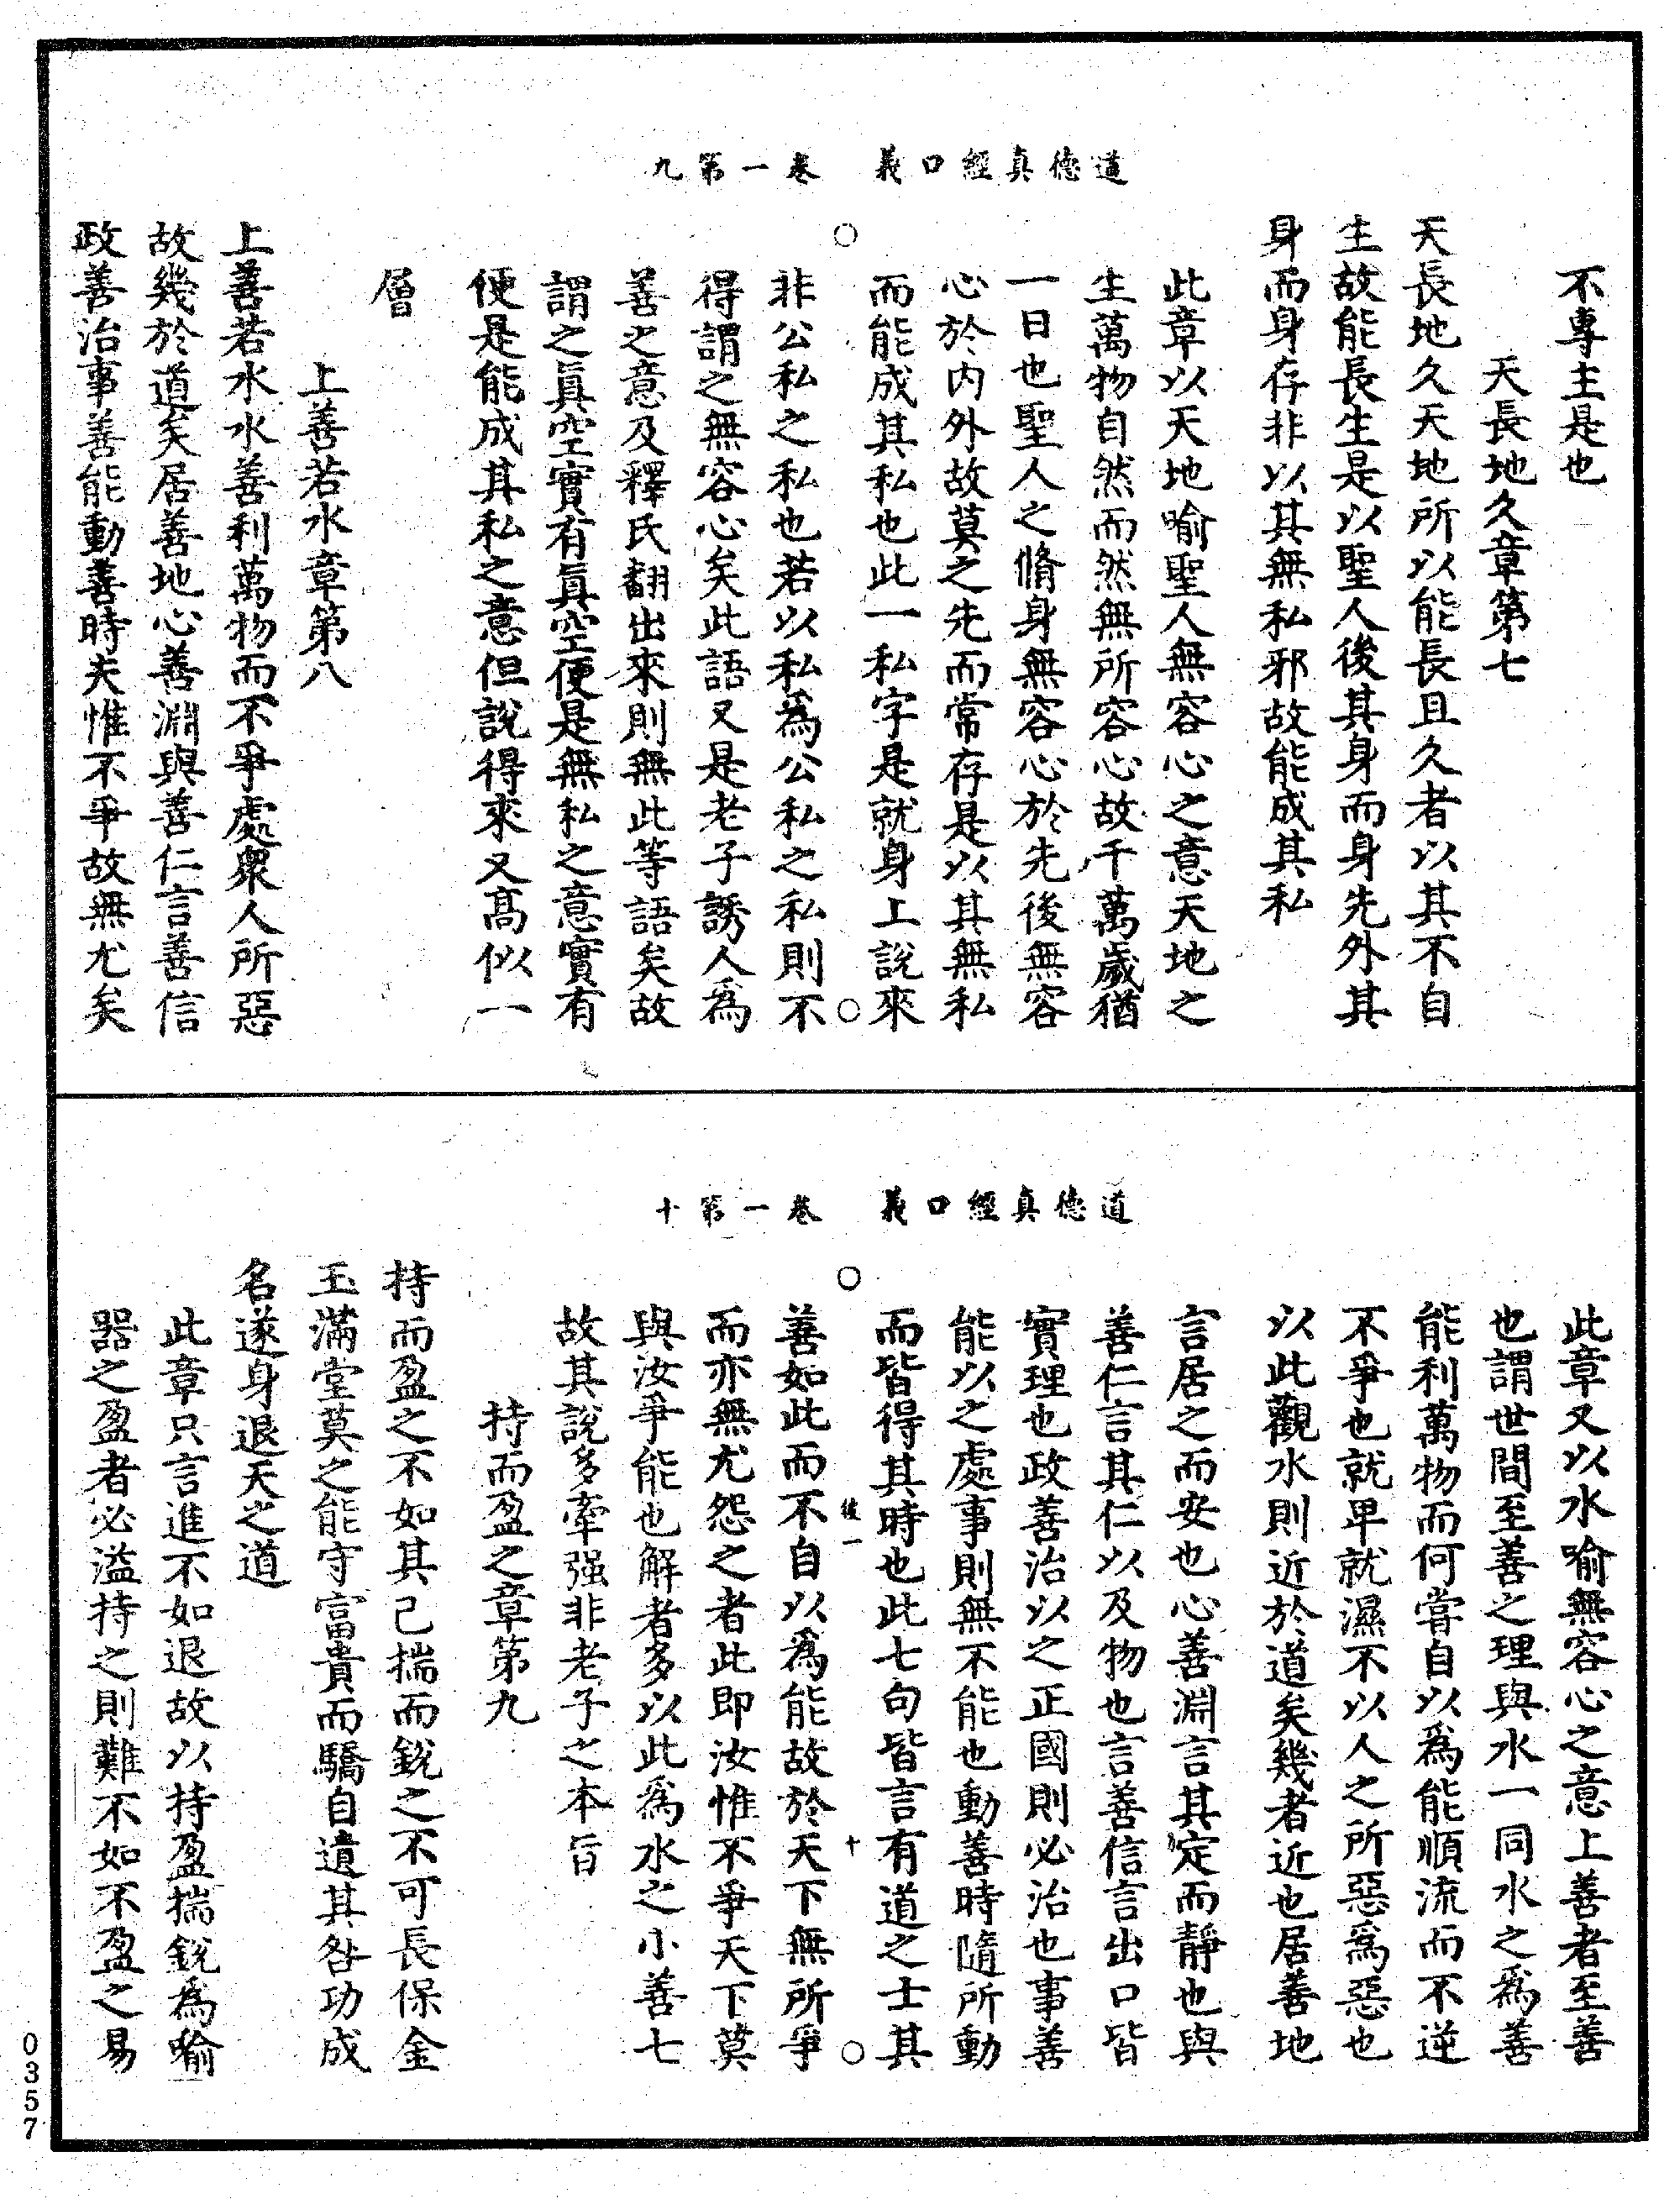 道德真經口義　卷一第九
不專主是也
天長地久章第七
天長地久天地所以能長且久者以其不自
生故能長生是以聖人後其身而身先外其
身而身存非以其無私邪故能成其私
此章以天地喻聖人無容心之意天地之
生萬物自然而然無所容心故千萬歲猶
一日也聖人之脩身無容心於先後無容
心於內外故莫之先而常存是以其無私
而能成其私也此一私字是就身上說來
非公私之私也若以私爲公私之私則不
得謂之無容心矣此語又是老子誘人爲
善之意及釋氏翻出來則無此等語矣故
謂之真空實有真空便是無私之意實有
便是能成其私之意但說得來又高似一
層
上善若水章第八
上善若水水善利萬物而不爭處衆人所惡
故幾於道矣居善地心善淵與善仁言善信
政善治事善能動善時夫惟不爭故無尤矣
道德真經口義　卷一第十
此章又以水喻無容心之意上善者至善
也謂世間至善之理與水一同水之爲善
能利萬物而何嘗自以爲能順流而不逆
不爭也就卑就濕不以人之所惡爲惡也
以此觀水則近於道矣幾者近也居善地
言居之而安也心善淵言其定而靜也與
善仁言其仁以及物也言善信言出口皆
實理也政善治以之正國則必治也事善
能以之處事則無不能也動善時隨所動
而皆得其時也此七句皆言有道之士其
後一　十
善如此而不自以爲能故於天下無所爭
而亦無尤怨之者此即汝惟不爭天下莫
與汝爭能也解者多以此爲水之小善七
故其說多牽强非老子之本旨
持而盈之章第九
持而盈之不如其已揣而銳之不可長保金
玉滿堂莫之能守富貴而驕自遺其咎功成
名遂身退天之道
此章只言進不如退故以持盈揣銳爲喻
器之盈者必溢持之則難不如不盈之易
0357